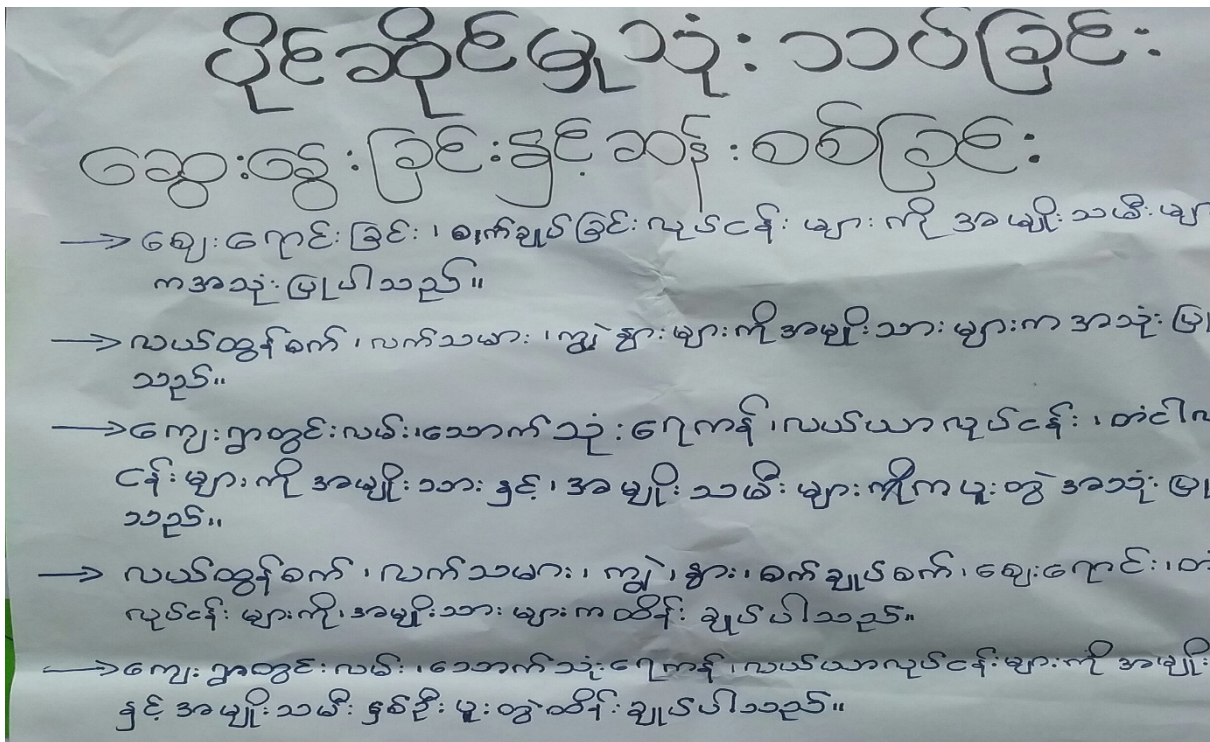 ပိုင်ဆိုင်မှုသုံးသပ်ခြင်း
ဆွေးနွေးခြင်းနှင့်ဆန်းစစ်ခြင်း
→ ဈေးရောင်းခြင်း၊ စက်ချုပ်ခြင်းလုပ်ငန်းများကို အမျိုးသမီးမျာ
ကအသုံးပြုပါသည်။
→ လယ်ထွန်စက်၊ လက်သမား၊ ကျွဲနွားများကိုအမျိုးသားများက အသုံးပြု
သည်။
→ ကျေးရွာတွင်းလမ်း၊ သောက်သုံးရေကန်၊ လယ်ယာလုပ်ငန်း၊ တံငါလ
ငန်းများကို အမျိုးသားနှင့်၊ အမျိုးသမီးများကိုကပူးတွဲအသုံးပြု
သည်။
→ လယ်ထွန်စက်၊ လက်သမား၊ ကျွဲ၊ နွား၊ စက်ချုပ်စက်၊ ဈေးရောင်း၊ တံ
လုပ်ငန်းများကို၊ အမျိုးသားများကထိန်းချုပ်ပါသည်။
→ ကျေးရွာတွင်းလမ်း၊ သောက်သုံးရေကန်၊ လယ်ယာလုပ်ငန်းများကို အမျိုး
နှင့်အမျိုးသမီးနှစ်ဦးပူးတွဲထိန်းချုပ်ပါသည်။